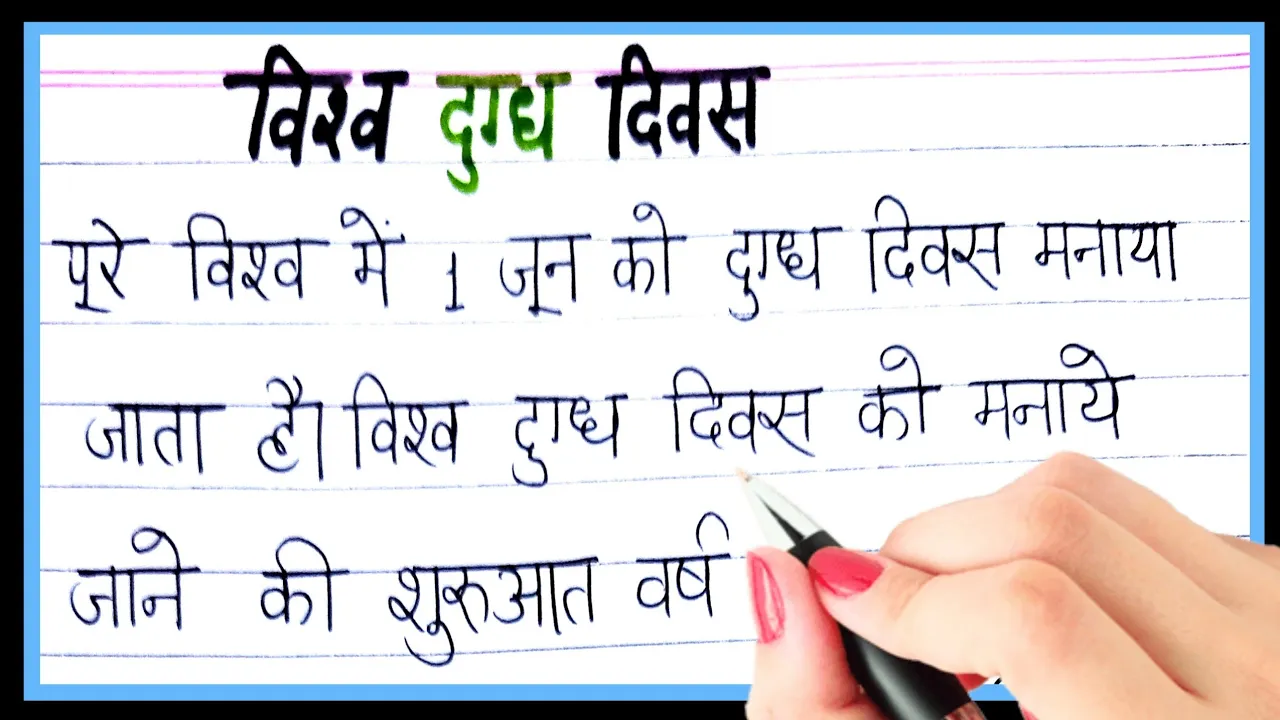 विश्व दुग्ध दिवस
पूरे विश्व में 1 जून को दुग्ध दिवस मनाया
जाता है। विश्व दुग्ध दिवस को मनाये
जाने की शुरुआत वर्ष